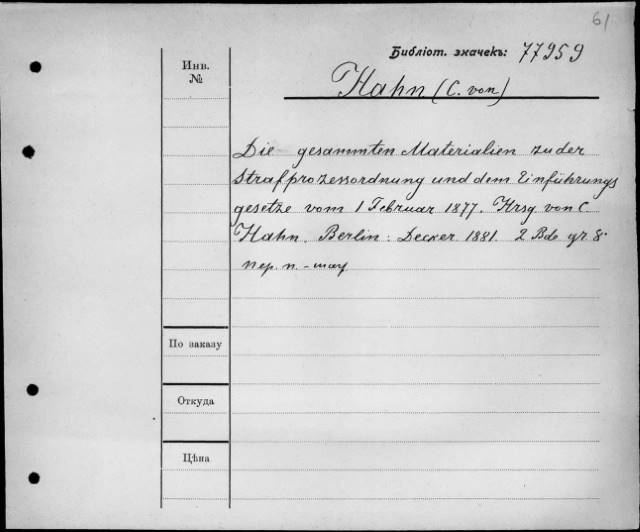 61
Библіот. значекъ: 77959
Инв.
№
Hahn (C. von)
Die gesammten Materialien zu der
Strafprozessordnung und dem Einführungs
gesetze vom 1 Februar 1877. Hrsg von C
Hahn. Berlin: Decker 1881. 2 Bde gr 8°
пер. п. -
По заказу
Откуда
Цѣна